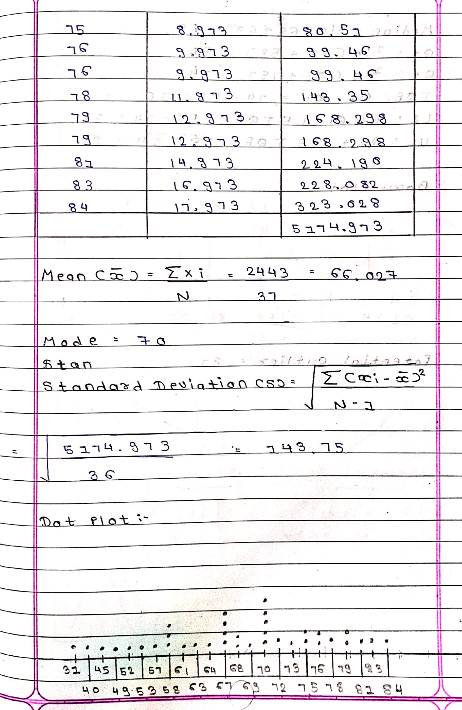 75 8.973 80.51
76 9.973 99.46
76 9.973 99.46
78 11.973 143.35
79 12.973 168.298
79 12.973 168.298
81 14.973 224.190
83 16.973 228.082
84 17.973 323.028
5174.973
Mean (x̄) = Σxi = 2443 = 66.027
N 37
Mode = 70
Stan
Standard Deviation (S) = √ Σ(xi - x̄)²
N-1
= √ 5174.973 = 143.75
36
Dot Plot :-
31 45 52 57 61 64 68 70 73 76 79 83
40 49 53 58 63 67 69 72 75 78 81 84